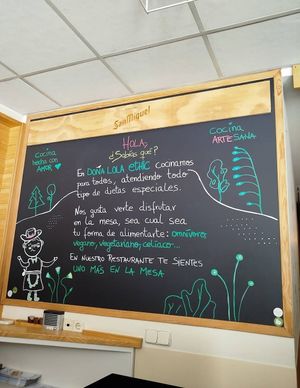 San Miguel
HOLA,
¿Sabías que?
COCINA
hecha con
AMOR
COCINA
ARTESANA
En DOÑA LOLA ethic cocinamos
para todos, atendiendo todo
tipo de dietas especiales.
Nos gusta verte disfrutar
en la mesa, sea cual sea
tu forma de alimentarte: omnívoro,
vegano, vegetariano, celíaco...
EN NUESTRO RESTAURANTE TE SIENTES
UNO MÁS EN LA MESA